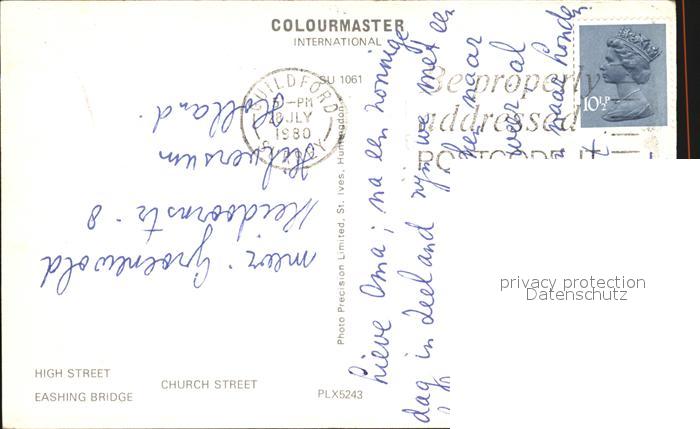 COLOURMASTER
INTERNATIONAL
SU 1061
GUILDFORD
-PM
28 JLY
1980
SURREY
Be properly
addressed
POSTCODE IT
10½P
mevr. Groenewold
Meidoornstr. 8
Hilversum
Holland.
Lieve Oma; na een zonnige
dag in Zeeland zijn we met een
naar
weer al
naar Londen
Photo Precision Limited, St. Ives, Huntingdon
HIGH STREET
CHURCH STREET
EASHING BRIDGE
PLX5243
privacy protection
Datenschutz